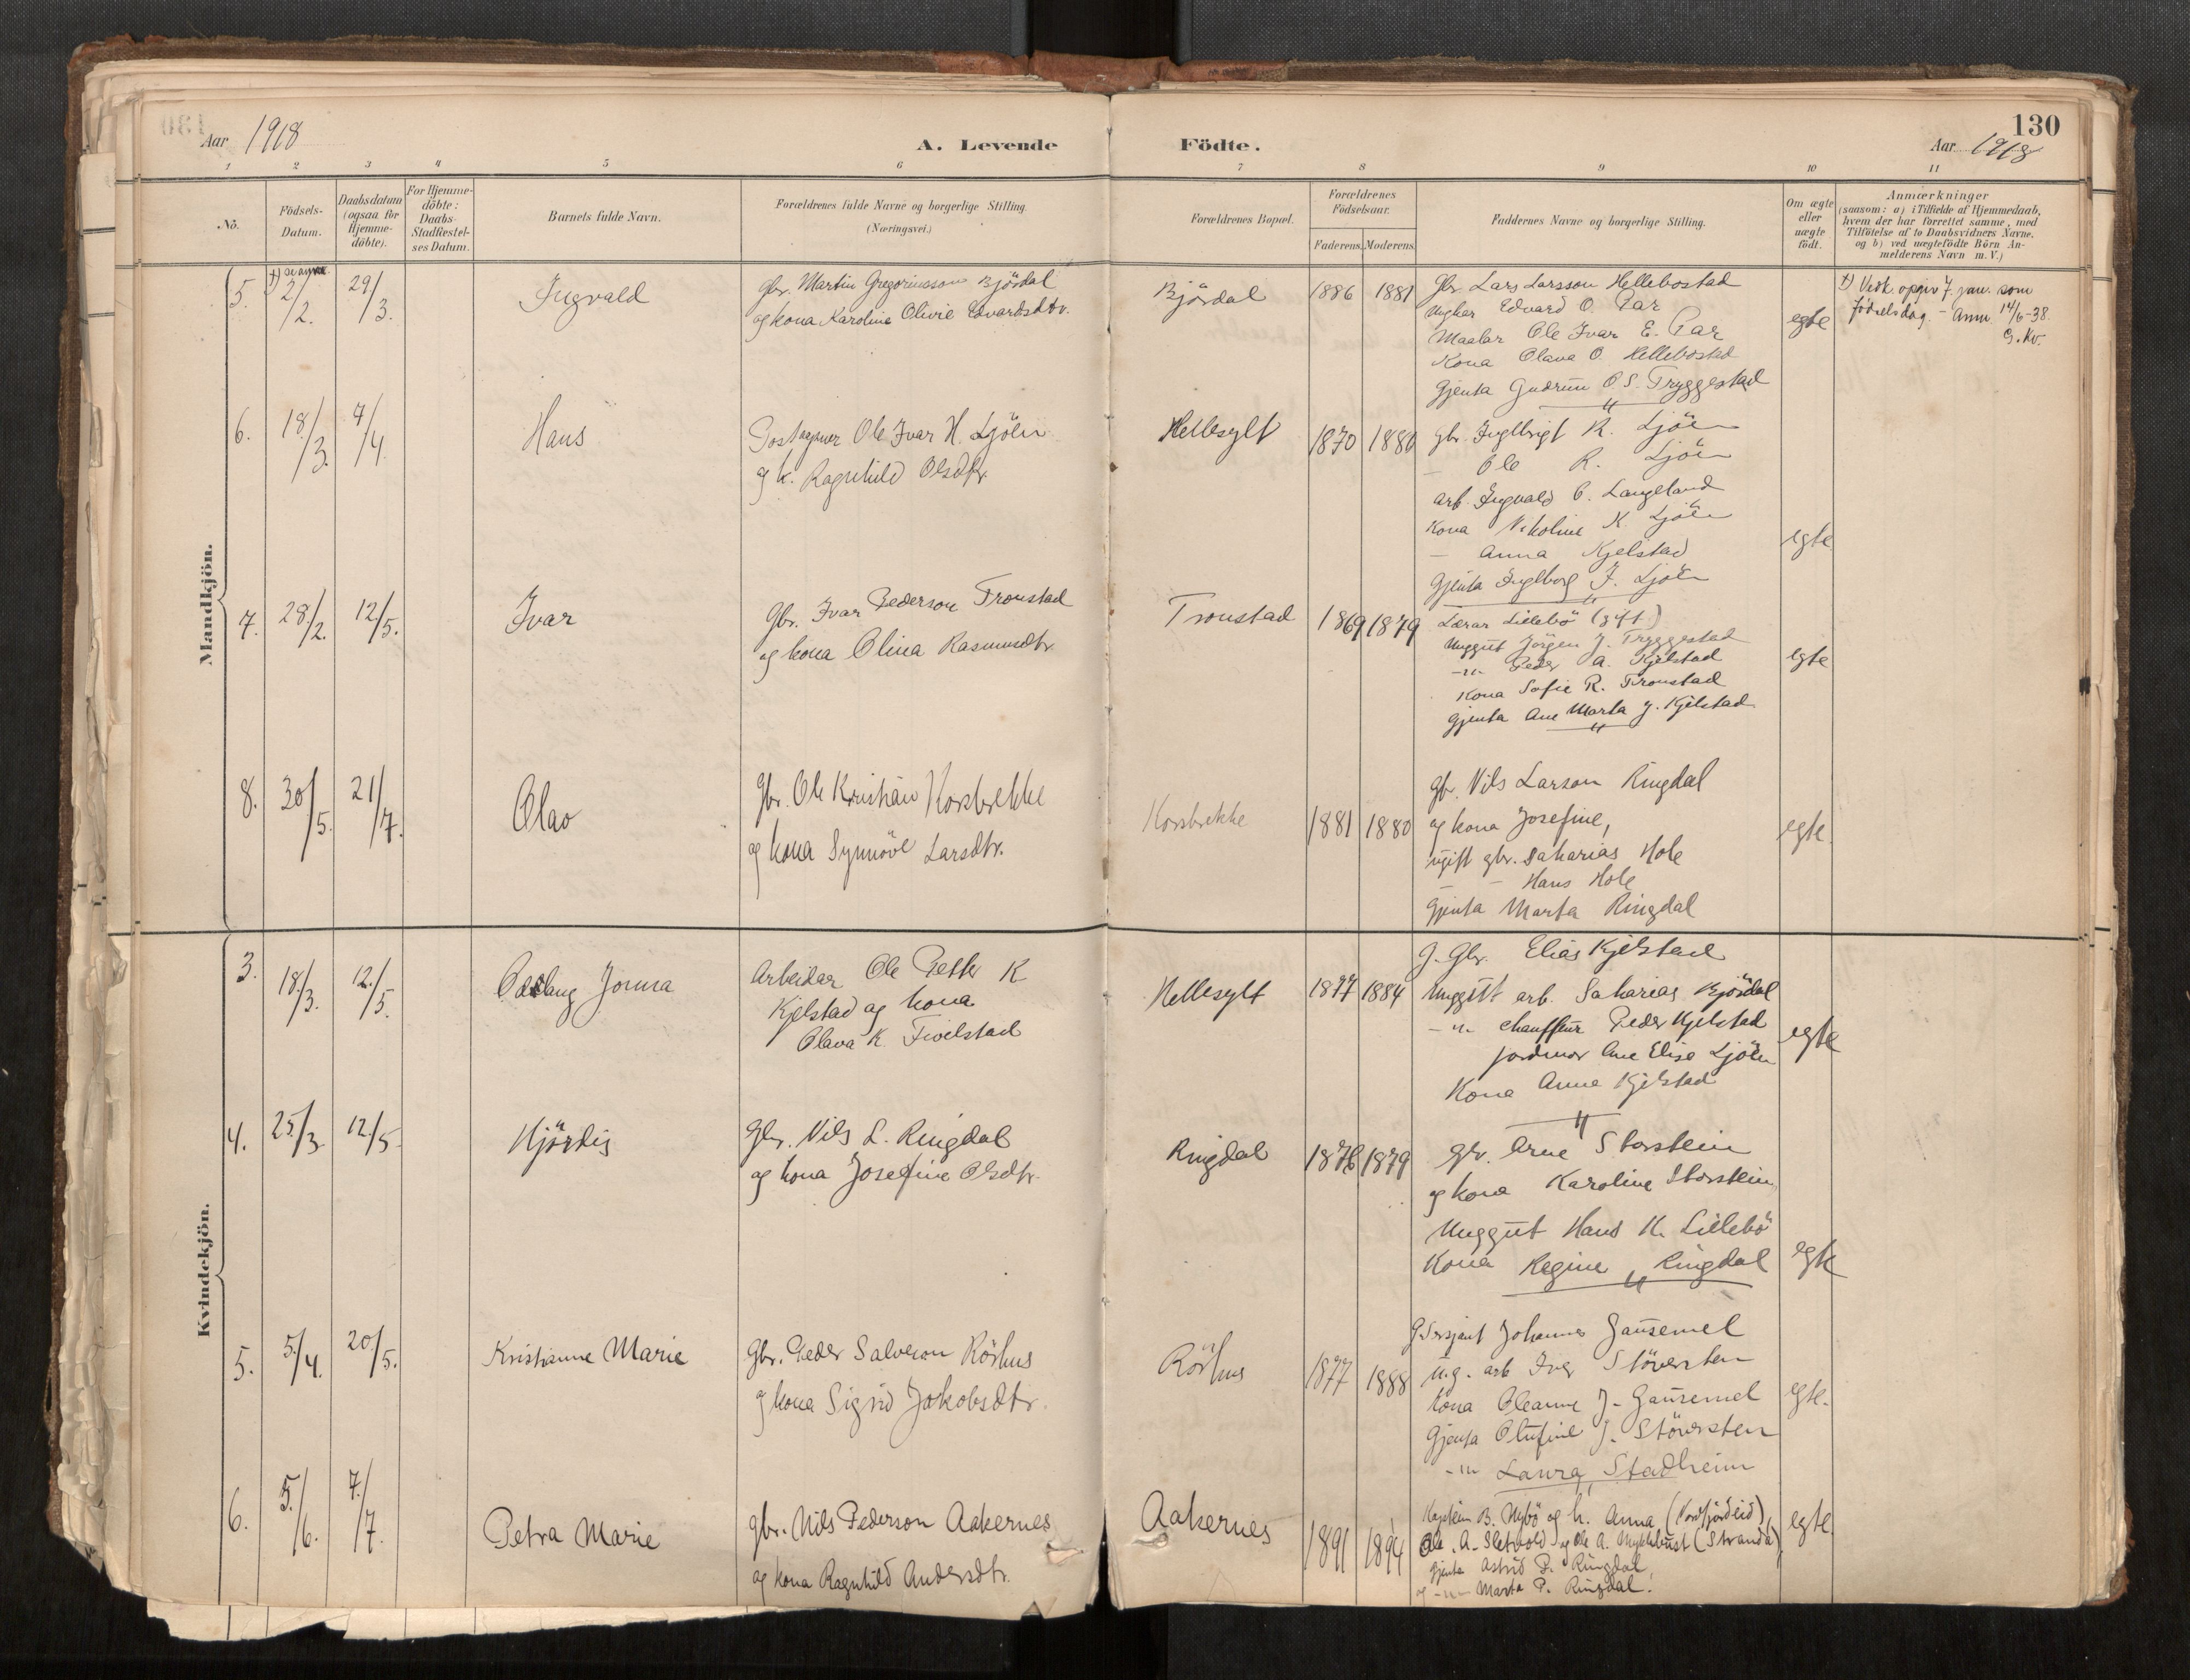 130
Aar 1918
A. Levende Födte.
Aar 1918
1 2 3 4 5 6 7 8 9 10 11
No.
Födsels-
Datum.
Daabsdatum
(ogsaa for
Hjemme-
döbte).
For Hjemme-
döbte:
Daabs-
Stadfestel-
ses Datum.
Barnets fulde Navn.
Forældrenes fulde Navne og borgerlige Stilling.
(Næringsvei.)
Forældrenes Bopæl.
Forældrenes
Födselsaar.
Faderens.
Moderens.
Faddernes Navne og borgerlige Stilling.
Om ægte
eller
uægte
födt.
Anmærkninger
(saasom: a) i Tilfælde af Hjemmedaab,
hvem der har forrettet samme, med
Tilföielse af to Daabsvidners Navne.
og b) ved uægtefödte Börn An-
melderens Navn m. V.)
Mandkjön.
5.
2/2.
29/3.
Ingvald
Gbr. Martin Gregoriusson Björdal
og kona Karoline Olivie Edvardsdtr.
Björdal
1886
1881
Gbr. Lars Larsson Hellebostad
Edvard O. Tar
Maalar Ole Ivar E. Tar
Kona Olava O. Hellebostad
Gjenta Gudrun O. S. Tryggestad
egte
†) Vedk. opgiv 7. jan. som
födselsdag. - Anm. 14/6-38.
6.
18/3.
7/4.
Hans
Ole Ivar H. Ljöen
og k. Ragnhild Olsdtr.
Hellesylt
1870
1880
gbr. Ingebrigt K. Ljöen
— Ole R. Ljöen
arb. Ingvald C. Langeland
Kona Nikoline K. Ljöen
— Anna Kjelstad
Gjenta Ingeborg I. Ljöen
egte
7.
28/2.
12/5.
Ivar
Gbr. Ivar Pederson Tronstad
og kona Olina Rasmusdtr.
Tronstad
1869
1879
Lærar Lillebö (gift.)
Unggut Jörgen J. Tryggestad
-"- Peder A. Kjelstad
Kona Sofie R. Tronstad
Gjenta Ane Marta J. Kjelstad
egte
8.
30/5.
21/7.
Olav
gbr. Ole Kristian Korsbrekke
og kona Synnöve Larsdtr.
Korsbrekke
1881
1880
gbr. Nils Larson Ringdal
og kona Josefine,
ugift gbr. Sakarias Hole
— — Hans Hole
Gjenta Marta Ringdal
egte.
Kvindekjön.
3.
18./3.
12./5.
Oddlaug Jorina
Arbeidar Ole Petter K
Kjelstad og kona
Olava K. Fivelstad
Hellesylt
1877
1884
g. Gbr. Elias Kjelstad
Unggutt arb. Sakarias Björdal
-"- chauffeur Peder Kjelstad
jordmor Ane Elise Ljöen
Kona Anna Kjelstad
egte
4.
25./3
12/5
Hjördis
Gbr. Nils L. Ringdal
og kona Josefine Olsdtr.
Ringdal
1878
1879
gbr. Arne Storstein
og kona Karoline Storstein,
Unggut Hans K. Lillebö
Kona Regine Ringdal
egte
5.
5./4.
20/5.
Kristianne Marie
Gbr. Peder Salveson Rörhus
og kona Sigrid Jakobsdtr.
Rörhus
1877
1888
G. Sersjant Johannes Gausemel
U.g. arb Iver Stöversten
Kona Oleanne J. Gausemel
Gjenta Olufine J. Stöversten
-"- Laura Stadheim
egte.
6.
5./6.
7./7.
Petra Marie
gbr. Nils Pederson Aakernes
og kona Ragnhild Andersdtr.
Aakernes
1891
1894
Kaptein B. Nybö og k. Anna (Nordfjordeid),
Ole A. Sletvold og Ole A. Myklebust (Stranda),
gjenta Astrid P. Ringdal,
og -"- Marta P. Ringdal.
egte.